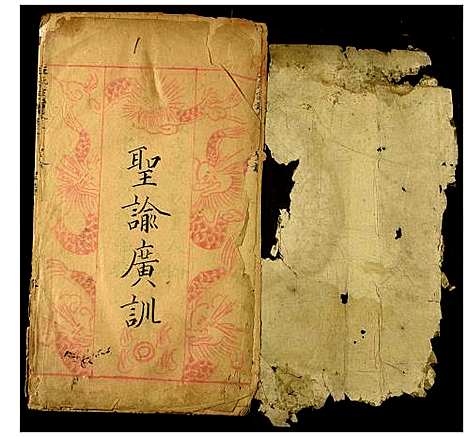 聖諭廣訓